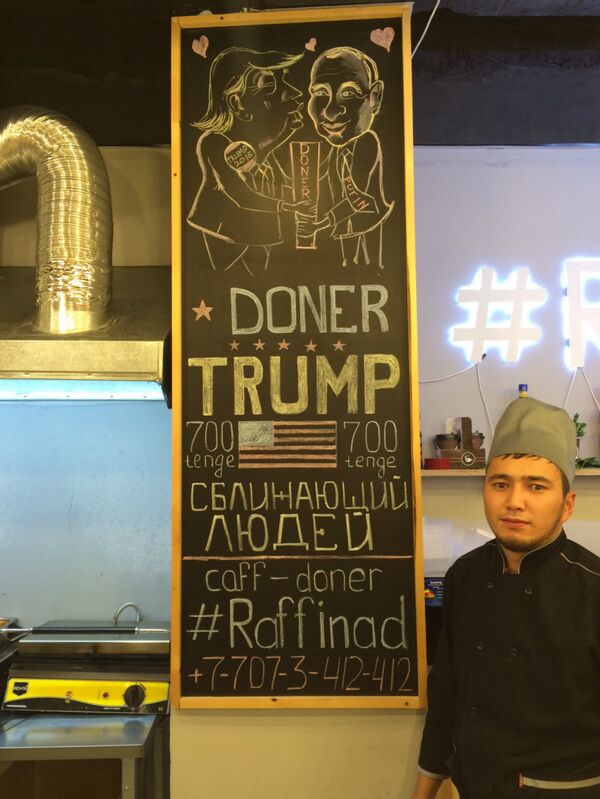 TRUMP
2016
DONER
PUTIN
DONER
TRUMP
700 700
tenge tenge
СБЛИЖАЮЩИЙ
ЛЮДЕЙ
caff-doner
#Raffinad
+7-707-3-412-412
#R